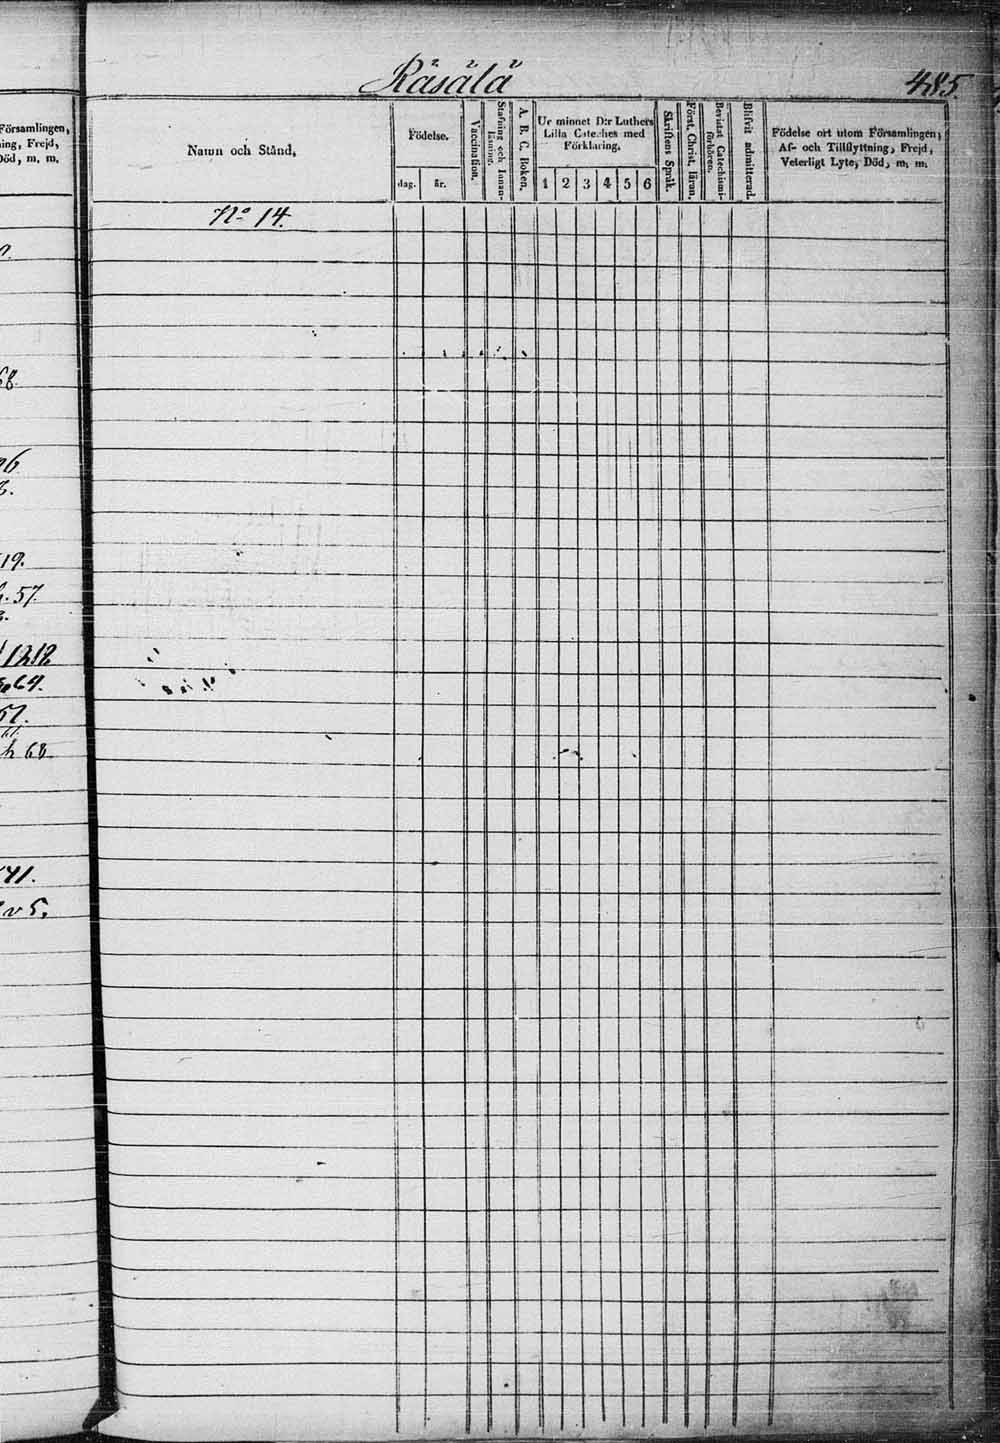 Räsälä
485.
Församlingen,
Frejd,
Död, m. m.
Namn och Stånd.
Födelse.
dag.
år.
Vaccination.
Stafning och Innan-
läsning.
A. B. C. Boken.
Ur minnet D:r Luthers
Lilla Cateches med
Förklaring.
1 2 3 4 5 6
Skriftens Språk.
Först. Christ. läran.
Bevistat Catechismi-
förhören.
Blifvit admitterad.
Födelse ort utom Församlingen,
Af- och Tillflyttning, Frejd,
Veterligt Lyte, Död, m. m.
No 14.
68.
19.
57.
1212
64.
57.
68
41.
v 5.